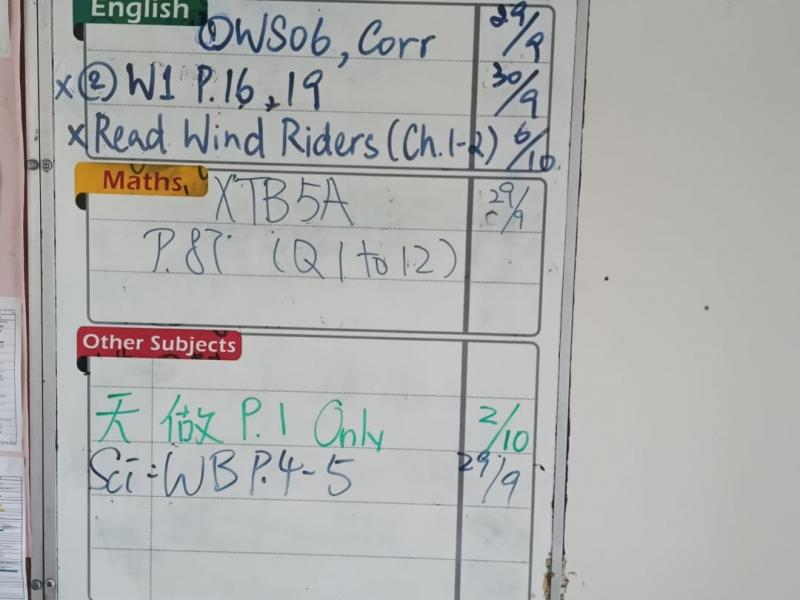 English
① WS06, Corr 29/9
x ② W1 P.16, 19 30/9
x Read Wind Riders (Ch.1-2) 6/10
Maths
X TB5A 29/9
P.87 (Q1 to 12)
Other Subjects
天 做 P.1 Only 2/10
Sci: WB P.4-5 29/9